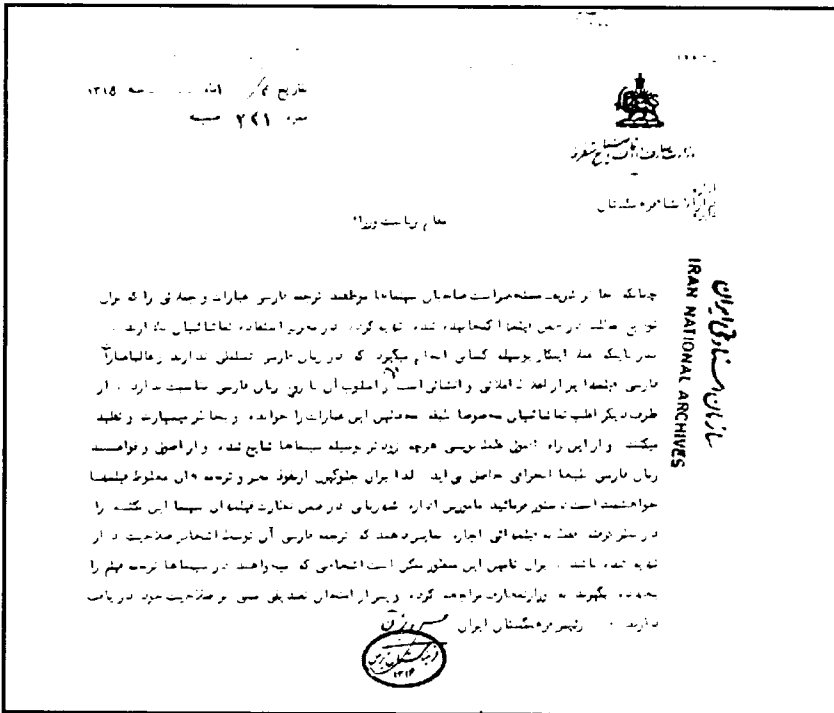 تاریخ ماه سنه ۱۳۱۵
نمره ۲۲۱ ضمیمه
وزارت معارف و اوقاف و صنایع مستظرفه
اداره
مقام ریاست وزراء
سازمان اسناد ملی ایران
IRAN NATIONAL ARCHIVES
چنانکه خاطر شریف مستحضر است صاحبان سینماها موظفند ترجمه فارسی عبارات و جملاتی را که برای
توضیح مطالب در ضمن فیلمها گنجانیده شده تهیه کرده در معرض استفاده تماشاچیان بگذارند .
نظر باینکه اینکار بوسیله کسانی انجام میگیرد که در زبان فارسی تسلطی ندارند و غالبا عبارات
فارسی فیلمها پر از اغلاط املائی و انشائی است و اسلوب آن با روح زبان فارسی مناسبت ندارد و از
طرف دیگر اغلب تماشاچیان مخصوصا طبقه محصلین این عبارات را خوانده و بخاطر میسپارند و تقلید
میکنند و از این راه غلط نویسی هرچه زودتر بوسیله سینماها شایع شده و از اصول و قواعد
زبان فارسی طبعا انحرافی حاصل می آید لذا برای جلوگیری از نفوذ مضر ترجمه های مغلوط فیلمها
خواهشمند است مقرر فرمائید مامورین اداره شهربانی در ضمن نظارت فیلمهای سینما این نکته را
در نظر گرفته فقط به فیلمهائی اجازه نمایش دهند که ترجمه فارسی آن توسط اشخاص صلاحیت دار
تهیه شده باشد . برای تامین این منظور ممکن است اشخاصی که میخواهند در سینماها ترجمه فیلم را
بعهده بگیرند به وزارت معارف مراجعه کرده و پس از امتحان تصدیقی مبنی بر صلاحیت خود دریافت
دارند . رئیس فرهنگستان ایران
فرهنگستان ایران
۱۳۱۴